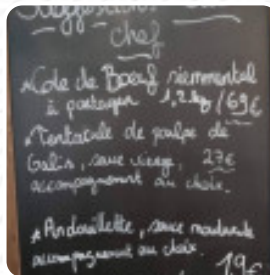 Suggestions du
chef
*Cote de Boeuf siemmental
à partager 1,2kg / 69€
*Tentacule de poulpe de
Galis, sauce vierge, 27€
accompagnement au choix.
*Andouillette, sauce moutarde
accompagnement au choix. 19€